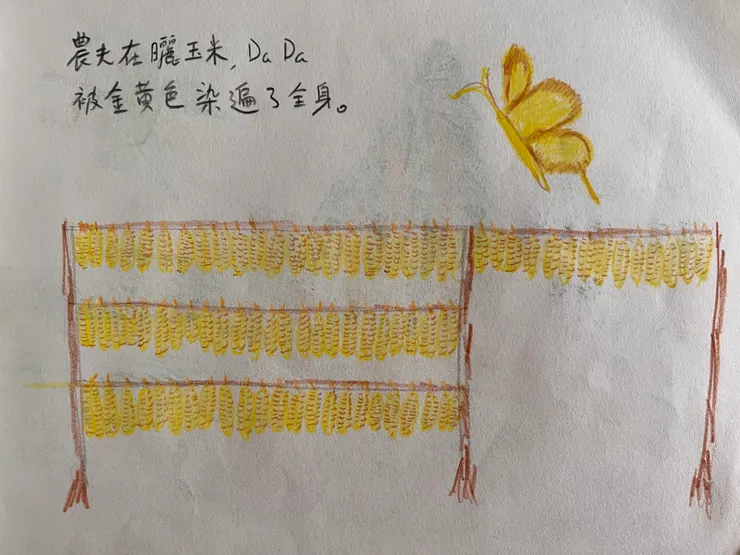 農夫在曬玉米, Da Da
被金黃色染遍了全身。